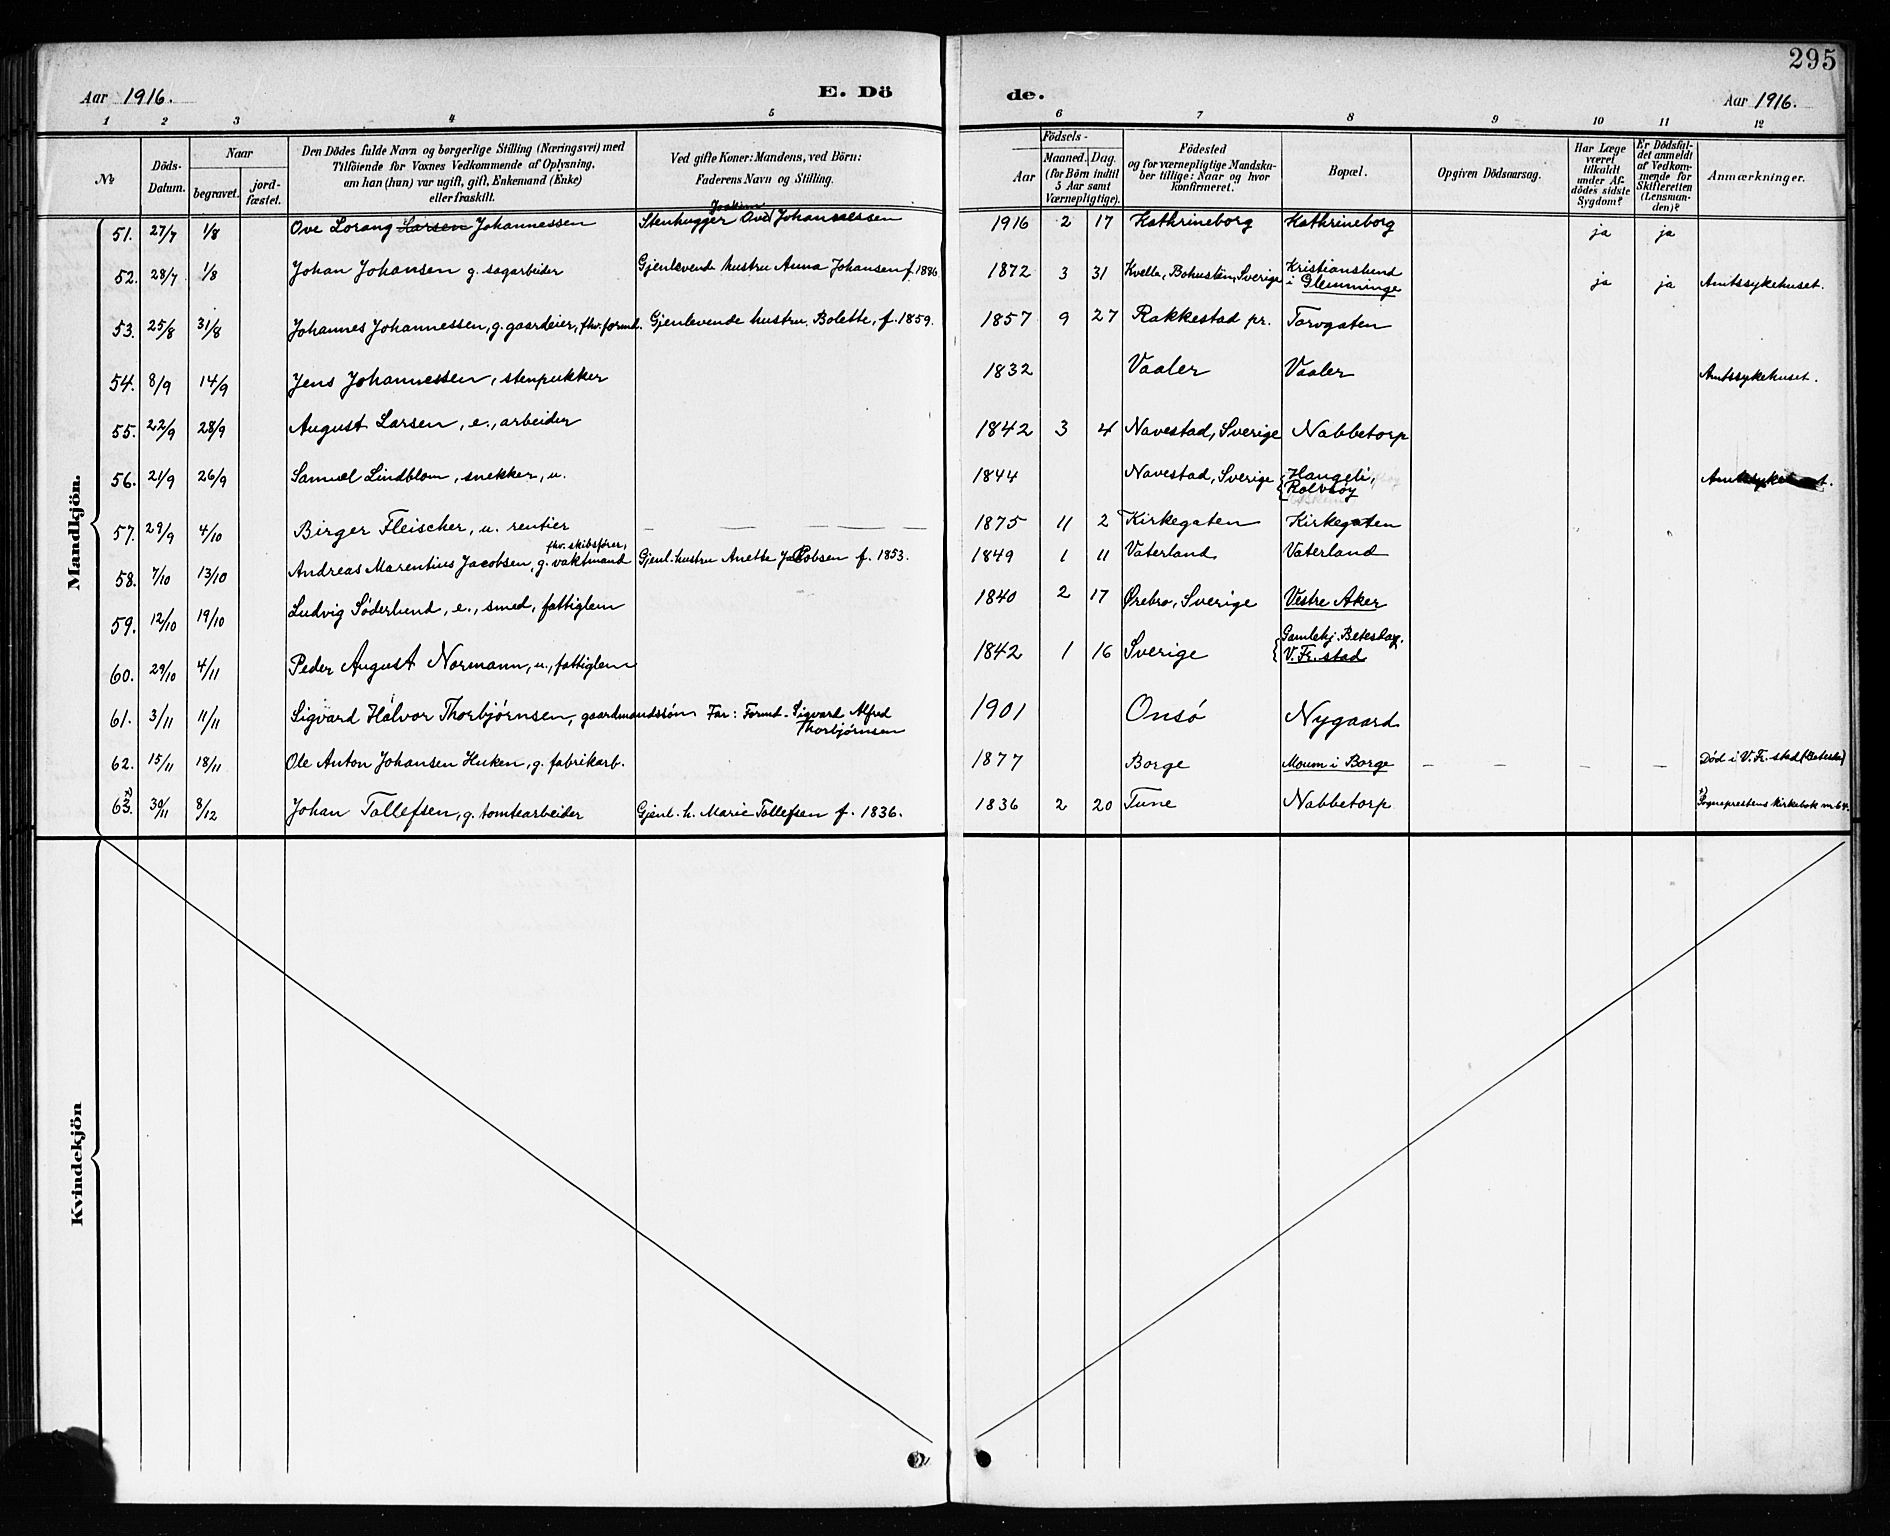 295
Aar 1916. E. Dö de. Aar 1916.
1 2 3 4 5 6 7 8 9 10 11 12
№
Döds-Datum.
Naar
begravet.
jord-fæstet.
Den Dödes fulde Navn og borgerlige Stilling (Næringsvei) med
Tilföiende for Voxnes Vedkommende af Oplysning,
om han (hun) var ugift, gift, Enkemand (Enke)
eller fraskilt.
Ved gifte Koner: Mandens, ved Börn:
Faderens Navn og Stilling.
Födsels-
Aar
Maaned. Dag.
(for Börn indtil
5 Aar samt
Værnepligtige).
Födested
og for værnepligtige Mandska-
ber tillige: Naar og hvor
Konfirmeret.
Bopæl.
Opgiven Dödsaarsag.
Har Læge
været
tilkaldt
under Af-
dödes sidste
Sygdom?
Er Dödsfal-
det anmeldt
af Vedkom-
mende for
Skifteretten
(Lensman-
den)?
Anmærkninger.
Mandkjön.
51. 27/7 1/8 Ove Lorang Larsen Johannessen Stenhugger Joakim Ove Johannessen 1916 2 17 Kathrineborg Kathrineborg ja ja
52. 28/7 1/8 Johan Johansen g. sagarbeider Gjenlevende hustru Anna Johansen f. 1886 1872 3 31 Kvelle, Bohuslän, Sverige Kristianslund i Glemminge ja ja Amtssykehuset.
53. 25/8 31/8 Johannes Johannessen, g. gaardeier, fhv. formd. Gjenlevende hustru Bolette, f. 1859. 1857 9 27 Rakkestad pr. Torvgaten
54. 8/9 14/9 Jens Johannessen, stenpukker 1832 Vaaler Vaaler Amtssykehuset.
55. 22/9 28/9 August Larsen, e., arbeider 1842 3 4 Navestad, Sverige Nabbetorp
56. 21/9 26/9 Samuel Lindblom, snekker, u. 1844 Navestad, Sverige Haugeli, Rolvsøy
57. 29/9 4/10 Birger Fleischer, u. rentier — — — — 1875 11 2 Kirkegaten Kirkegaten
58. 7/10 13/10 Andreas Marentius Jacobsen, g. fhv. skibsfører, vaktmand Gjenl. hustru Anette Jacobsen f. 1853. 1849 1 11 Vaterland Vaterland
59. 12/10 19/10 Ludvig Söderlund, e., smed, fattiglem 1840 2 17 Ørebro, Sverige Vestre Aker
60. 29/10 4/11 Peder August Normann, u., fattiglem 1842 1 16 Sverige Gamlehj. Betesda, V. Fr. stad
61. 3/11 11/11 Sigvard Halvor Thorbjørnsen, gaardmandssøn Far: Formd. Sigvard Alfred Thorbjørnsen 1901 Onsø Nygaard
62. 15/11 18/11 Ole Anton Johansen Huken, g. fabrikarb. 1877 Borge Moum i Borge — — — — Död i V. Fr. stad (Betesda)
63. x) 30/11 8/12 Johan Tollefsen, g. tomtearbeider Gjenl. h. Marie Tollefsen f. 1836. 1836 2 20 Tune Nabbetorp x) Sogneprestens kirkebok nr 64.
Kvindekjön